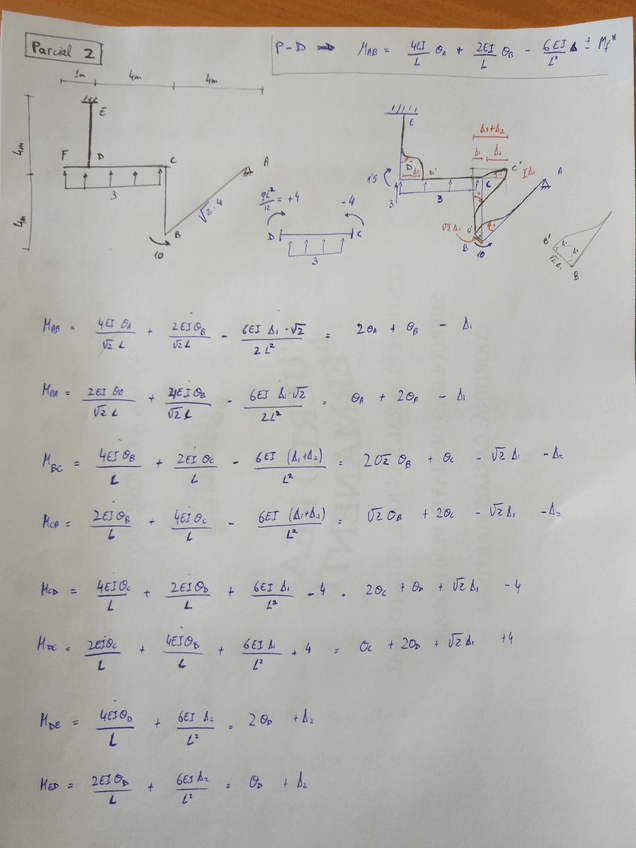 Parcial 2
P-D ⇒ M_AB = 4EI/L θ_A + 2EI/L θ_B - 6EI/L² Δ ± M_f*
1m 4m 4m
4m
4m
E
F D C A
3
√2·4
B
10
qL²/12 = +4 -4
D C
3
E
Δ1+Δ2
Δ1 Δ2
D C C' A
1'5
3
3
√2 Δ1
B 10
B'
√2 Δ1
B
M_AB = 4EI θ_A/√2 L + 2EI θ_B/√2 L - 6EI Δ1·√2/2L² = 2θ_A + θ_B - Δ1
M_BA = 2EI θ_A/√2 L + 4EI θ_B/√2 L - 6EI Δ1·√2/2L² = θ_A + 2θ_B - Δ1
M_BC = 4EI θ_B/L + 2EI θ_C/L - 6EI (Δ1+Δ2)/L² = 2√2 θ_B + θ_C - √2 Δ1 - Δ2
M_CB = 2EI θ_B/L + 4EI θ_C/L - 6EI (Δ1+Δ2)/L² = √2 θ_B + 2θ_C - √2 Δ1 - Δ2
M_CD = 4EI θ_C/L + 2EI θ_D/L + 6EI Δ1/L² - 4 = 2θ_C + θ_D + √2 Δ1 - 4
M_DC = 2EI θ_C/L + 4EI θ_D/L + 6EI Δ1/L² + 4 = θ_C + 2θ_D + √2 Δ1 + 4
M_DE = 4EI θ_D/L + 6EI Δ2/L² = 2θ_D + Δ2
M_ED = 2EI θ_D/L + 6EI Δ2/L² = θ_D + Δ2